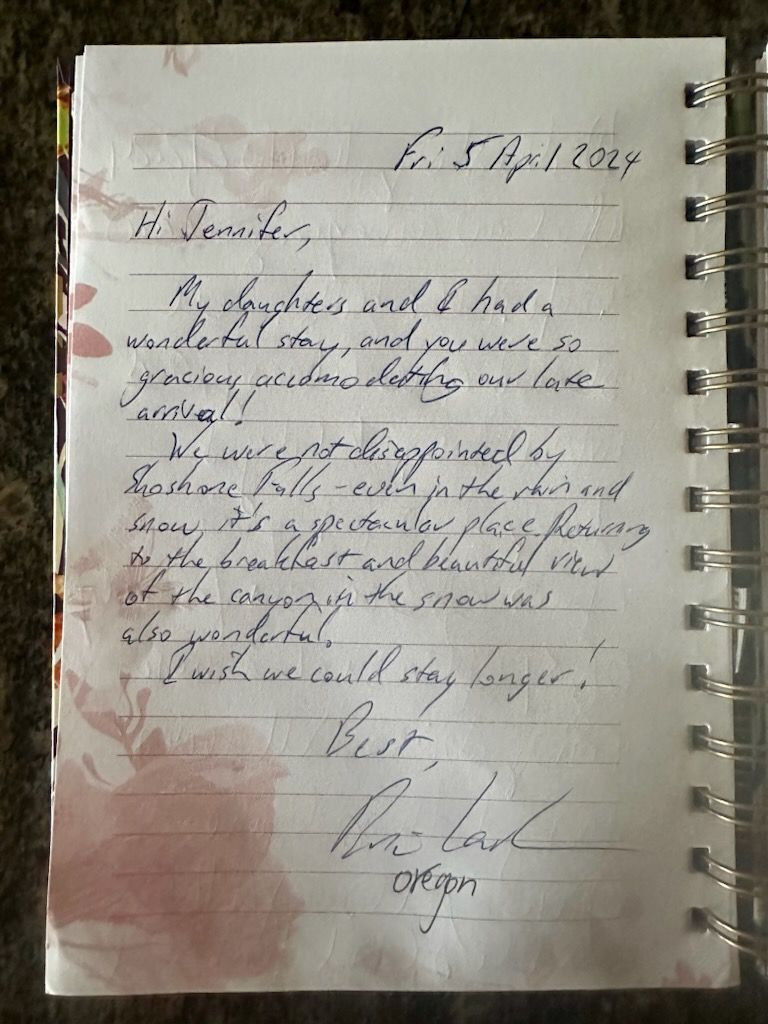 Fri 5 April 2024
Hi Jennifer,
My daughters and I had a
wonderful stay, and you were so
gracious accomodating our late
arrival!
We were not disappointed by
Shoshone Falls - even in the rain and
snow, it's a spectacular place. Returning
to the breakfast and beautiful view
of the canyon in the snow was
also wonderful.
I wish we could stay longer!
Best,
oregon